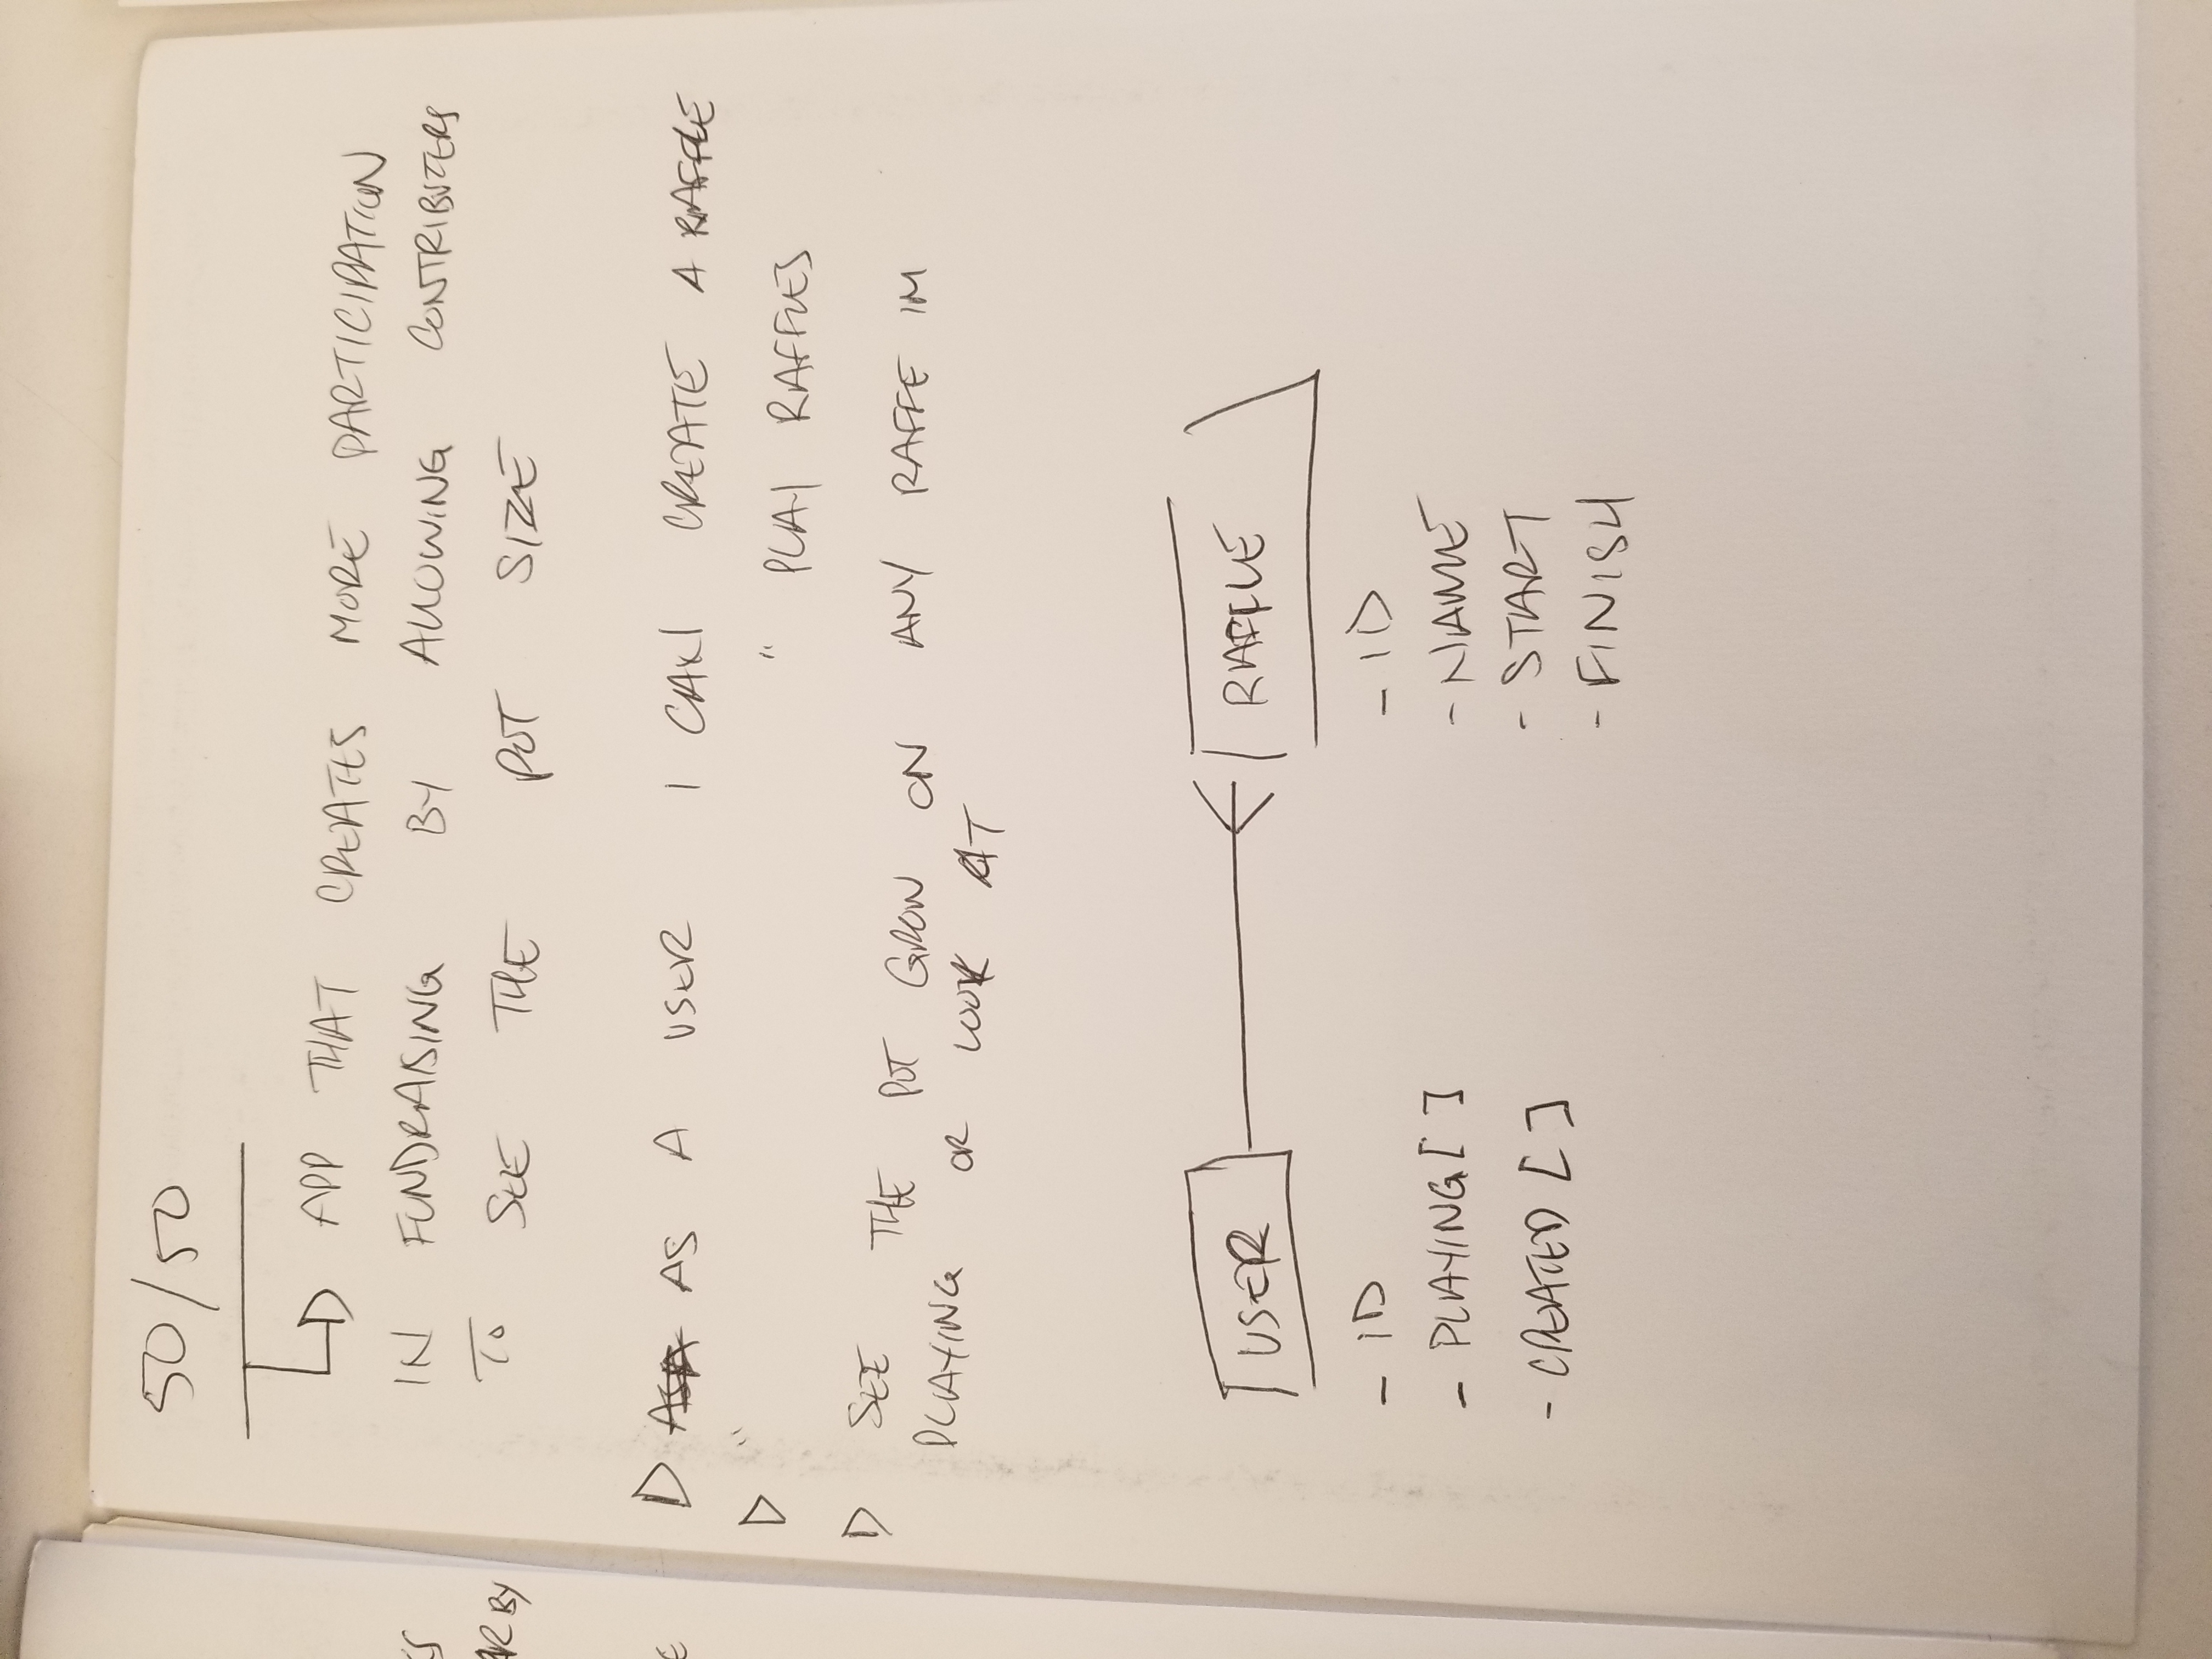 50/50
APP THAT CREATES MORE PARTICIPATION
IN FUNDRAISING BY ALLOWING CONTRIBUTERS
TO SEE THE POT SIZE
AS A USER I CAN CREATE A RAFFLE
" " PLAY RAFFLES
SEE THE POT GROW ON ANY RAFFE IM
PLAYING OR LOOK AT
USER
RAFFLE
- ID
- PLAYING [ ]
- CREATED [ ]
- ID
- NAME
- START
- FINISH
BY